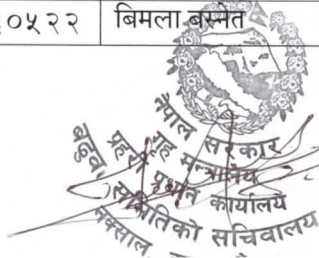 ०५२२ बिमला बस्नेत
नेपाल सरकार
गृह मन्त्रालय
प्रहरी प्रधान कार्यालय
बढुवा समितिको सचिवालय
नक्साल